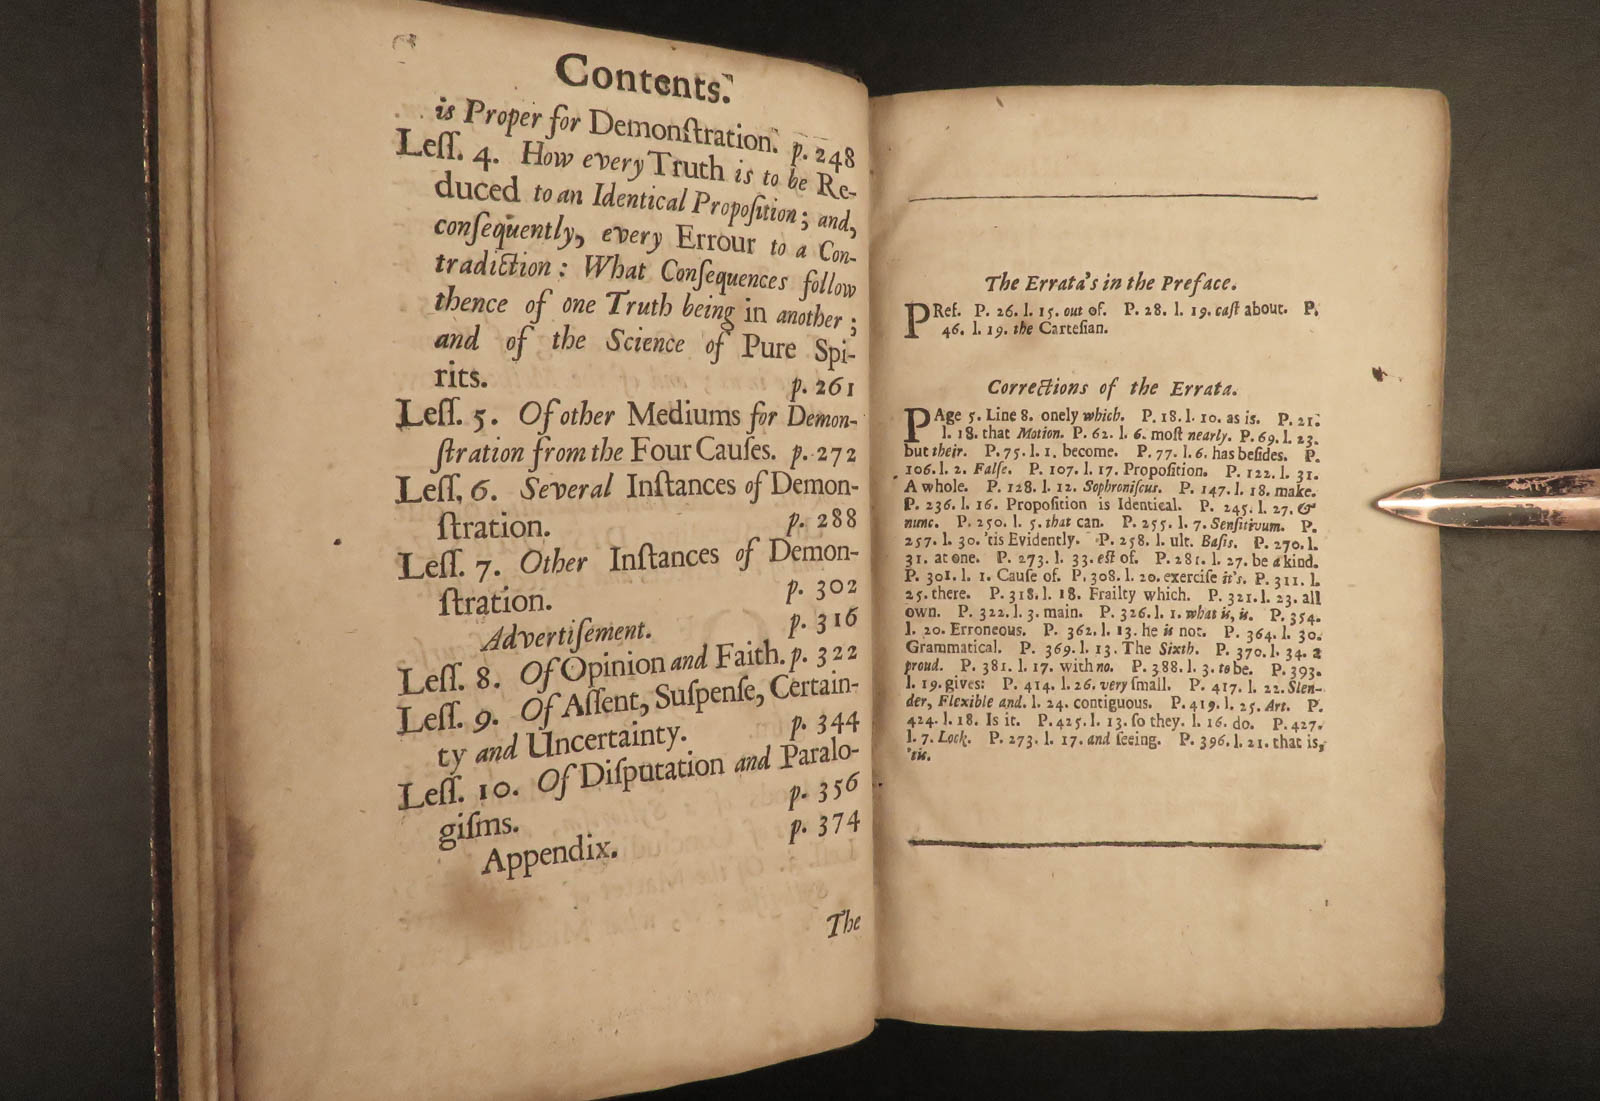 Contents.
is Proper for Demonſtration. p. 248
Leſſ. 4. How every Truth is to be Re-
duced to an Identical Propoſition; and,
conſequently, every Errour to a Con-
tradiction: What Conſequences follow
thence of one Truth being in another;
and of the Science of Pure Spi-
rits. p. 261
Leſſ. 5. Of other Mediums for Demon-
ſtration from the Four Cauſes. p. 272
Leſſ. 6. Several Inſtances of Demon-
ſtration. p. 288
Leſſ. 7. Other Inſtances of Demon-
ſtration. p. 302
Advertiſement. p. 316
Leſſ. 8. Of Opinion and Faith. p. 322
Leſſ. 9. Of Aſſent, Suſpenſe, Certain-
ty and Uncertainty. p. 344
Leſſ. 10. Of Diſputation and Paralo-
giſms. p. 356
Appendix. p. 374
The
The Errata's in the Preface.
PRef. P. 26. l. 15. out of. P. 28. l. 19. caſt about. P.
46. l. 19. the Carteſian.
Corrections of the Errata.
PAge 5. Line 8. onely which. P. 18. l. 10. as is. P. 21.
l. 18. that Motion. P. 62. l. 6. moſt nearly. P. 69. l. 23.
but their. P. 75. l. 1. become. P. 77. l. 6. has beſides. P.
106. l. 2. Falſe. P. 107. l. 17. Propoſition. P. 122. l. 31.
A whole. P. 128. l. 12. Sophroniſcus. P. 147. l. 18. make.
P. 236. l. 16. Propoſition is Identical. P. 245. l. 27. &
nunc. P. 250. l. 5. that can. P. 255. l. 7. Senſitivum. P.
257. l. 30. 'tis Evidently. P. 258. l. ult. Baſis. P. 270. l.
31. at one. P. 273. l. 33. eſt of. P. 281. l. 27. be a kind.
P. 301. l. 1. Cauſe of. P. 308. l. 20. exerciſe it's. P. 311. l.
25. there. P. 318. l. 18. Frailty which. P. 321. l. 23. all
own. P. 322. l. 3. main. P. 326. l. 1. what is, is. P. 354.
l. 20. Erroneous. P. 362. l. 13. he is not. P. 364. l. 30.
Grammatical. P. 369. l. 13. The Sixth. P. 370. l. 34. a
proud. P. 381. l. 17. with no. P. 388. l. 3. to be. P. 393.
l. 19. gives: P. 414. l. 26. very ſmall. P. 417. l. 22. Slen-
der, Flexible and. l. 24. contiguous. P. 419. l. 25. Art. P.
424. l. 18. Is it. P. 425. l. 13. ſo they. l. 16. do. P. 427.
l. 7. Lock. P. 273. l. 17. and ſeeing. P. 396. l. 21. that is,
'tis.